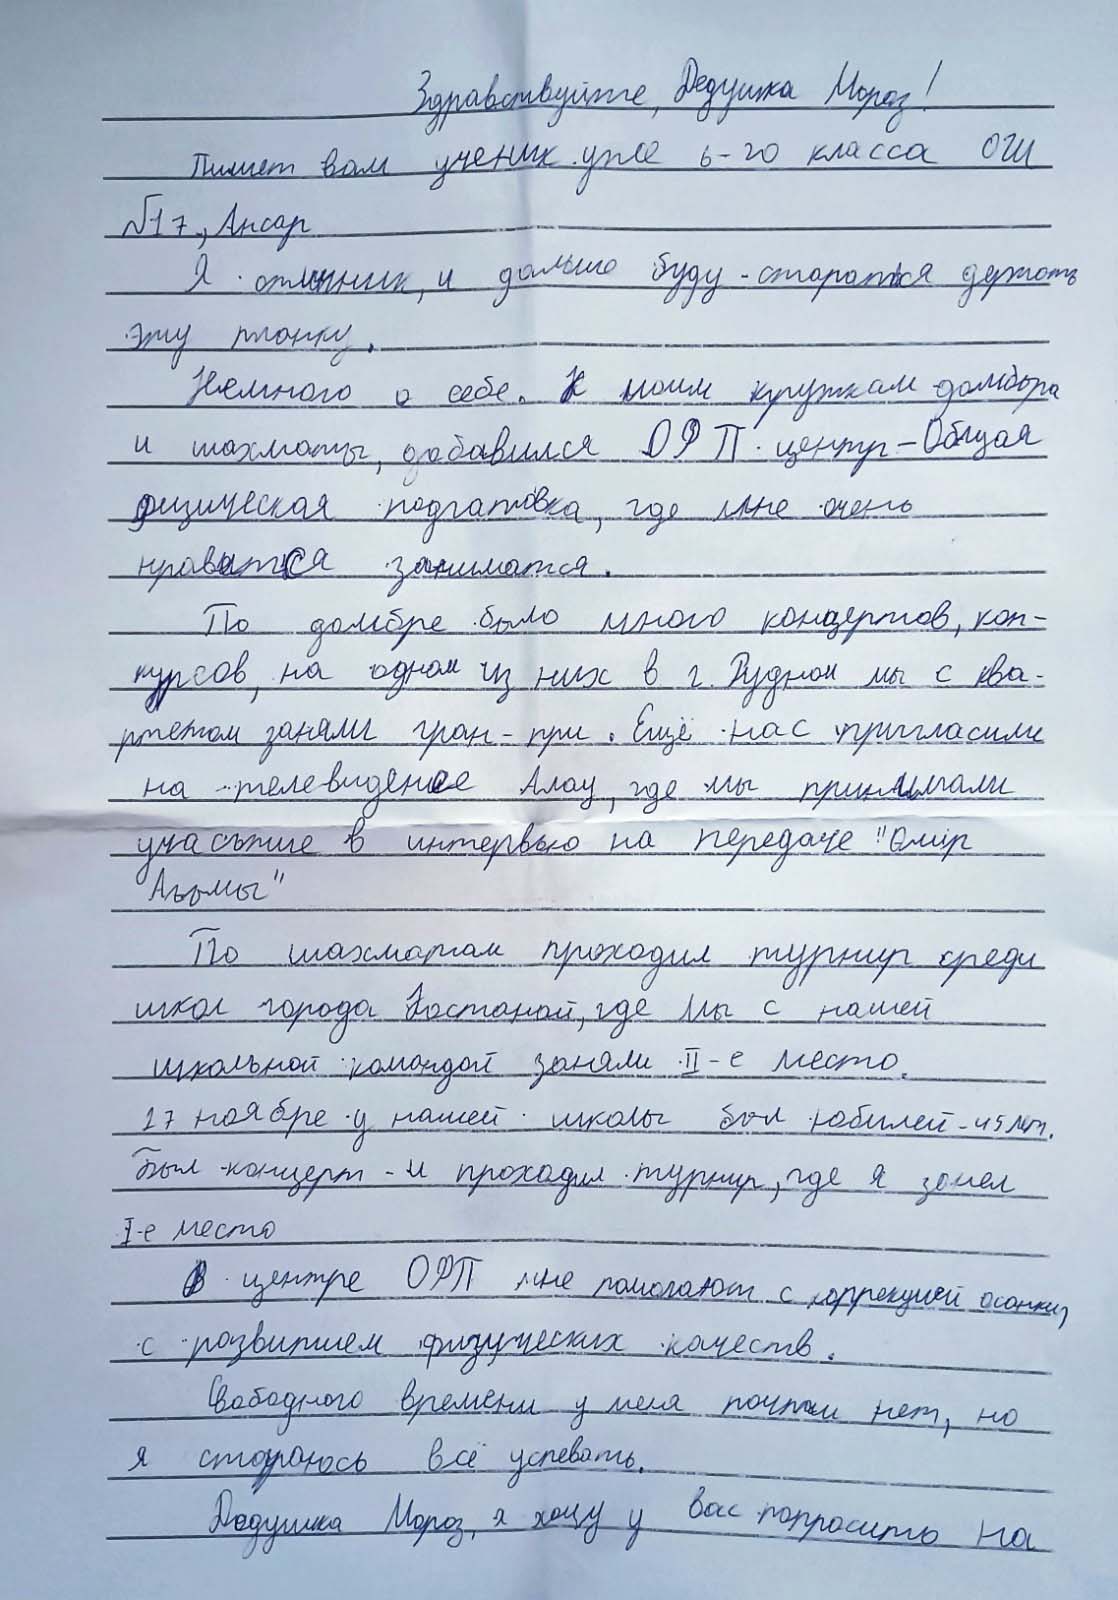 Здравствуйте, Дедушка Мороз!
Пишет вам ученик уже 6-го класса ОШ
№17, Ансар
Я отличник, и дальше буду стараться держать
эту планку.
Немного о себе. К моим кружкам домбыра
и шахматы, добавился ОФП центр-Общая
физическая подгатовка, где мне очень
нравится заниматся.
По домбре было много концертов, кон-
курсов, на одном из них в г. Рудном мы с ква-
ртетом заняли гран-при. Ещё нас пригласили
на телевидение Алау, где мы принимали
участие в интервью на передаче "Өмір
Ағымы"
По шахматам проходил турнир среди
школ города Костанай, где мы с нашей
школьной командой заняли II-е место.
17 ноябре у нашей школы был юбилей-45 лет.
Был концерт и проходил турнир, где я занел
I-е место
В центре ОФП мне помогают с коррекцией осанки,
с развитием физических качеств.
Свободного времени у меня почти нет, но
я стараюсь всё успевать.
Дедушка Мороз, я хочу у вас попросить на